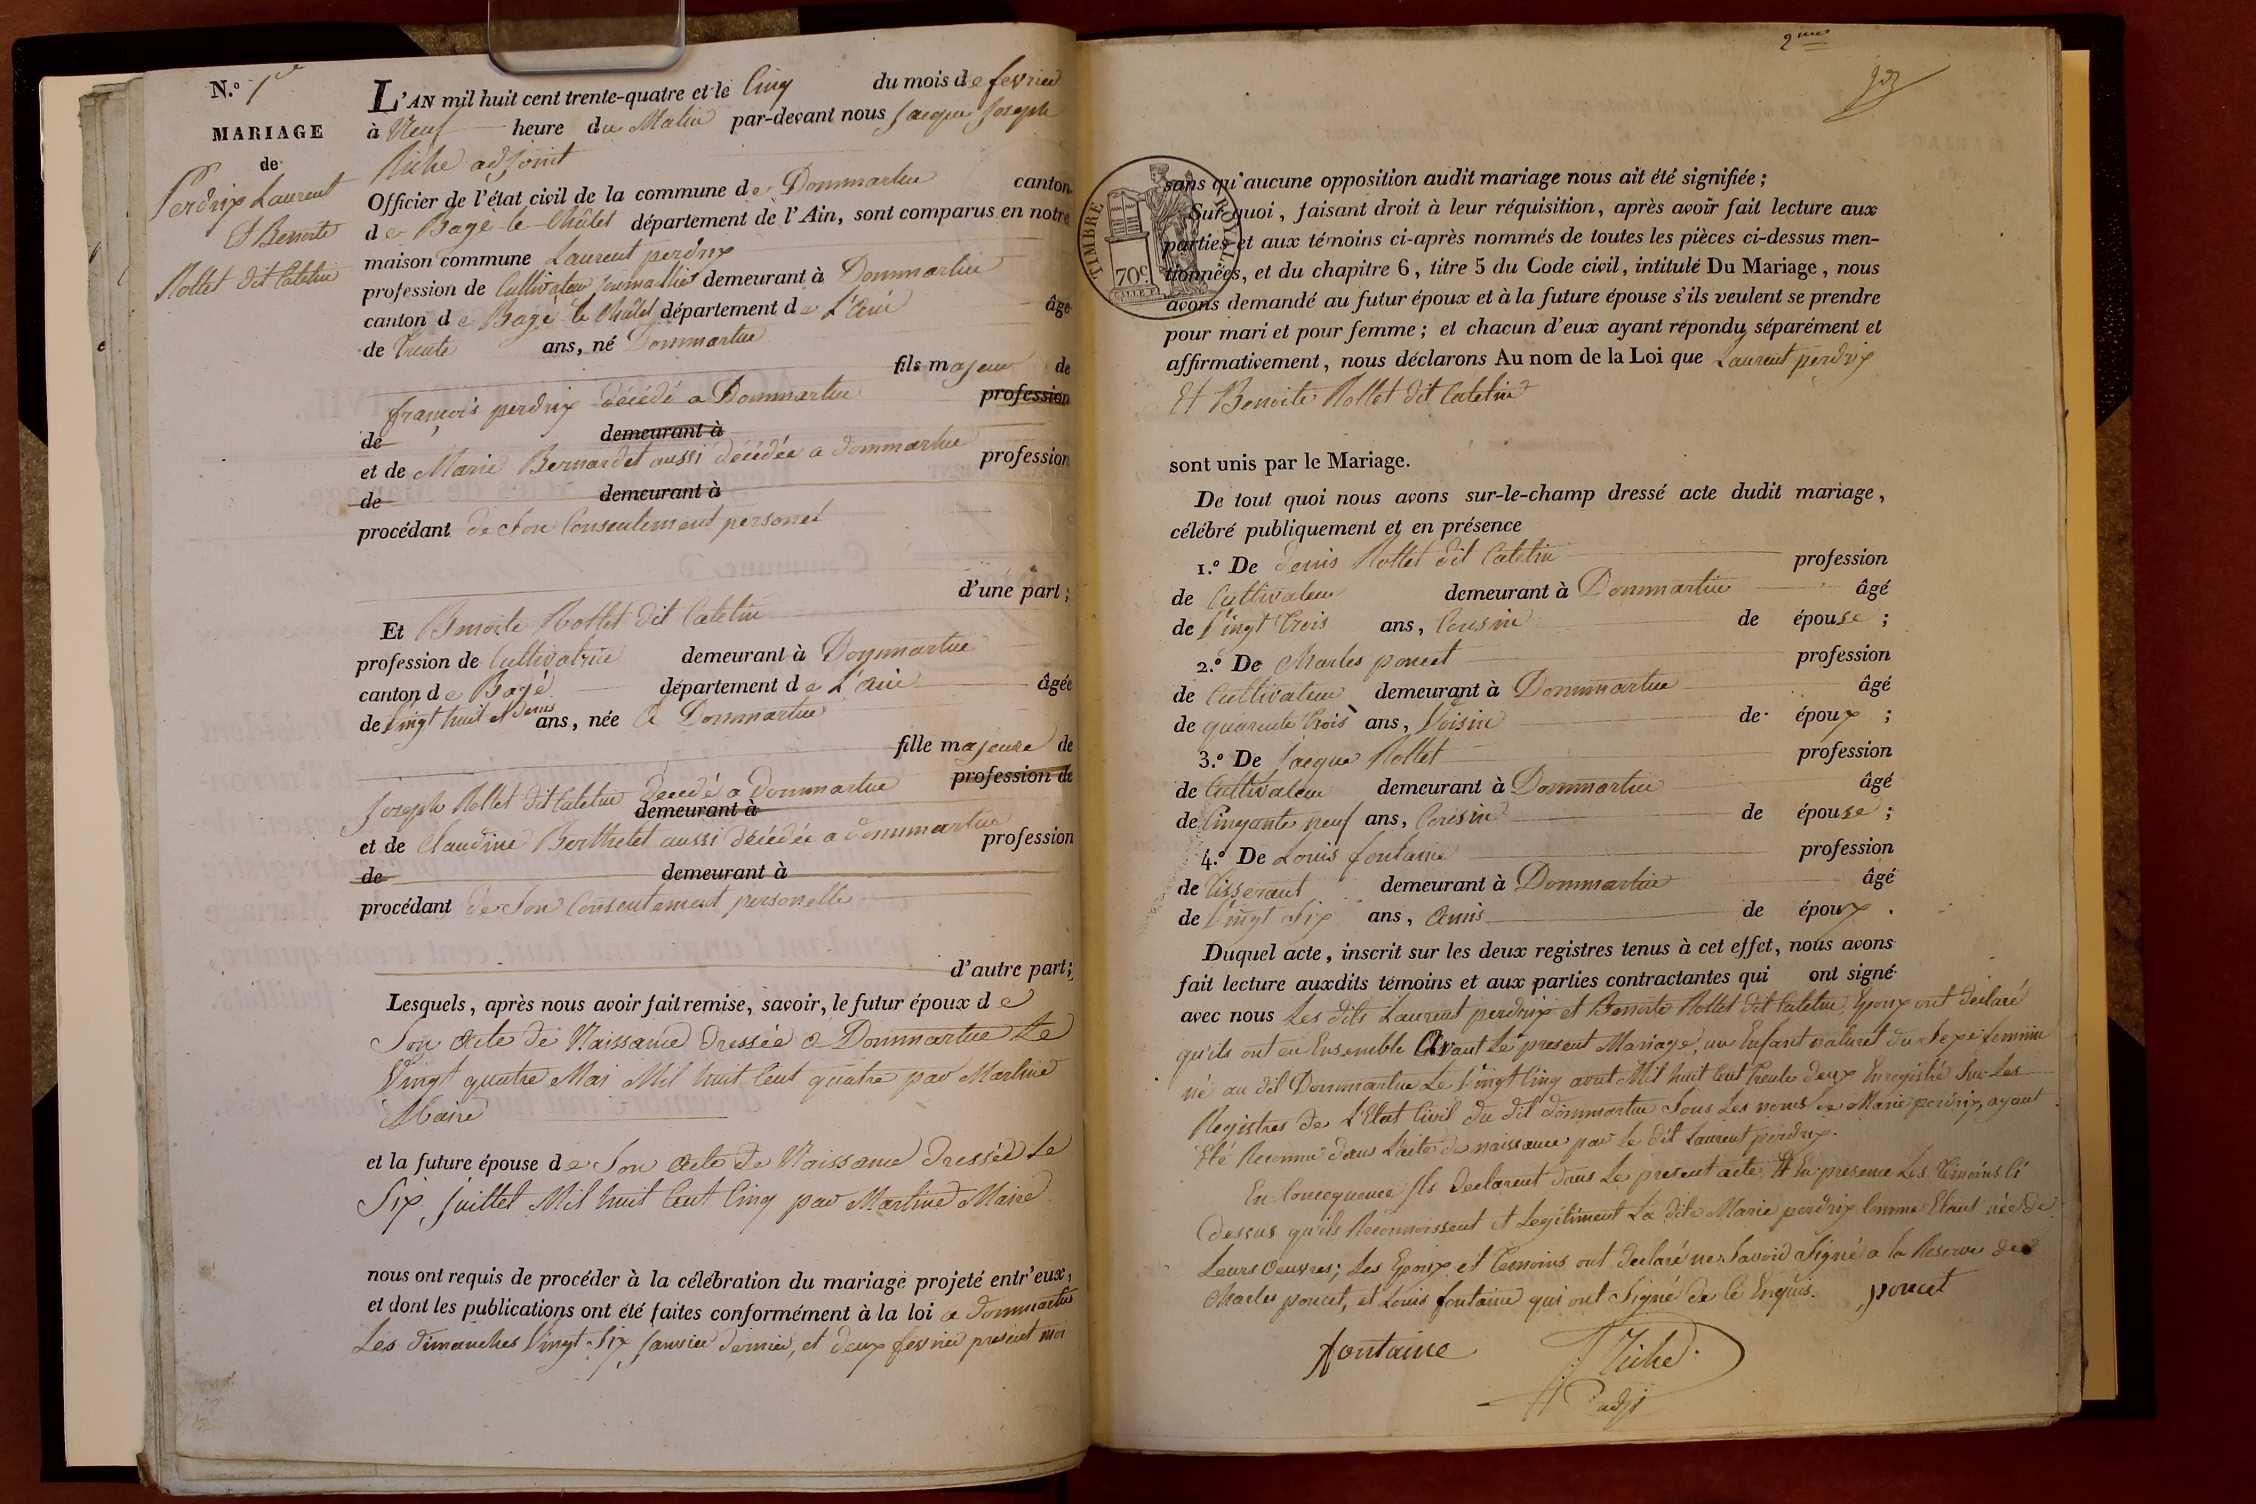 N.o 1er
MARIAGE
de
Perdrix Laurent
Et Benoite
Rollet dit Catelin
L'AN mil huit cent trente-quatre et le Cinq du mois de fevrier
à Neuf heure du Matin par-devant nous Jacque Joseph
Riche adjoint
Officier de l'état civil de la commune de Dommartin canton
de Bagé le Châtel département de l'Ain, sont comparus en notre
maison commune Laurent perdrix
profession de Cultivateur journallier demeurant à Dommartin
canton de Bagé le Châtel département de L'ain âgé
de trente ans, né Dommartin
fils majeur de
françois perdrix décédé a Dommartin profession
de demeurant à
et de Marie Bernardet aussi décédée a dommartin profession
de demeurant à
procédant de Son Consentement personel
d'une part;
Et Benoite Rollet dit Catelin
profession de Cultivatrice demeurant à Dommartin
canton de Bagé département de L'ain âgée
de Vingt huit et demis ans, née à Dommartin
fille majeure de
Joseph Rollet dit Catelin décedé a dommartin profession de
demeurant à
et de Claudine Berthelet aussi décédée a dommartin profession
de demeurant à
procédant de Son Consentement personelle
d'autre part;
Lesquels, après nous avoir fait remise, savoir, le futur époux de
Son acte de Naissance dressée a Dommartin Le
Vingt quatre Mai Mil huit Cent quatre par Martine
Maire
et la future épouse de Son acte de Naissance dressée Le
Six Juillet Mil huit Cent Cinq par Martine Maire
nous ont requis de procéder à la célébration du mariage projeté entr'eux,
et dont les publications ont été faites conformément à la loi a dommartin
Les dimanches Vingt Six Janvier dernier, et deux fevrier present moi
2me
TIMBRE ROYAL
70c.
sans qu'aucune opposition audit mariage nous ait été signifiée;
Sur quoi, faisant droit à leur réquisition, après avoir fait lecture aux
parties et aux témoins ci-après nommés de toutes les pièces ci-dessus men-
tionnées, et du chapitre 6, titre 5 du Code civil, intitulé Du Mariage, nous
avons demandé au futur époux et à la future épouse s'ils veulent se prendre
pour mari et pour femme; et chacun d'eux ayant répondu séparément et
affirmativement, nous déclarons Au nom de la Loi que Laurent perdrix
Et Benoite Rollet dit Catelin
sont unis par le Mariage.
De tout quoi nous avons sur-le-champ dressé acte dudit mariage,
célébré publiquement et en présence
1.o De denis Rollet dit Catelin profession
de Cultivateur demeurant à Dommartin âgé
de Vingt trois ans, Cousin de épouse;
2.o De Charles poncet profession
de Cultivateur demeurant à Dommartin âgé
de quarente trois ans, Voisin de époux;
3.o De Jacque Rollet profession
de Cultivateur demeurant à Dommartin âgé
de Cinqante neuf ans, Cousin de épouse;
4.o De Louis fontaine profession
de tisserant demeurant à Dommartin âgé
de Vingt Six ans, amis de époux.
Duquel acte, inscrit sur les deux registres tenus à cet effet, nous avons
fait lecture auxdits témoins et aux parties contractantes qui ont signé
avec nous Les dits Laurent perdrix et Benoite Rollet dit Catelin, Epoux ont declaré
qu'ils ont eu Ensemble avant Le present Mariage, un Enfant naturel du Sexe feminin
né au dit Dommartin Le Vingt Cinq aout Mil huit Cent trente deux Enregistré Sur Les
Registres de L'Etat Civil du dit dommartin Sous Les noms de Marie perdrix, ayant
Eté Reconnu dans L'acte de naissance par Le dit Laurent perdrix.
En Concequence ils declarent dans Le present acte Et En presence Les témoins Ci
dessus qu'ils Reconnoissent et Legitiment La dite Marie perdrix Comme Etant née de
Leurs Oeuvres; Les Epoux et témoins ont declaré ne Savoir Signé a la Reserve de
Charles poncet, et Louis fontaine qui ont Signé de Ce Enquis. poncet
fontaine Riche
adjt